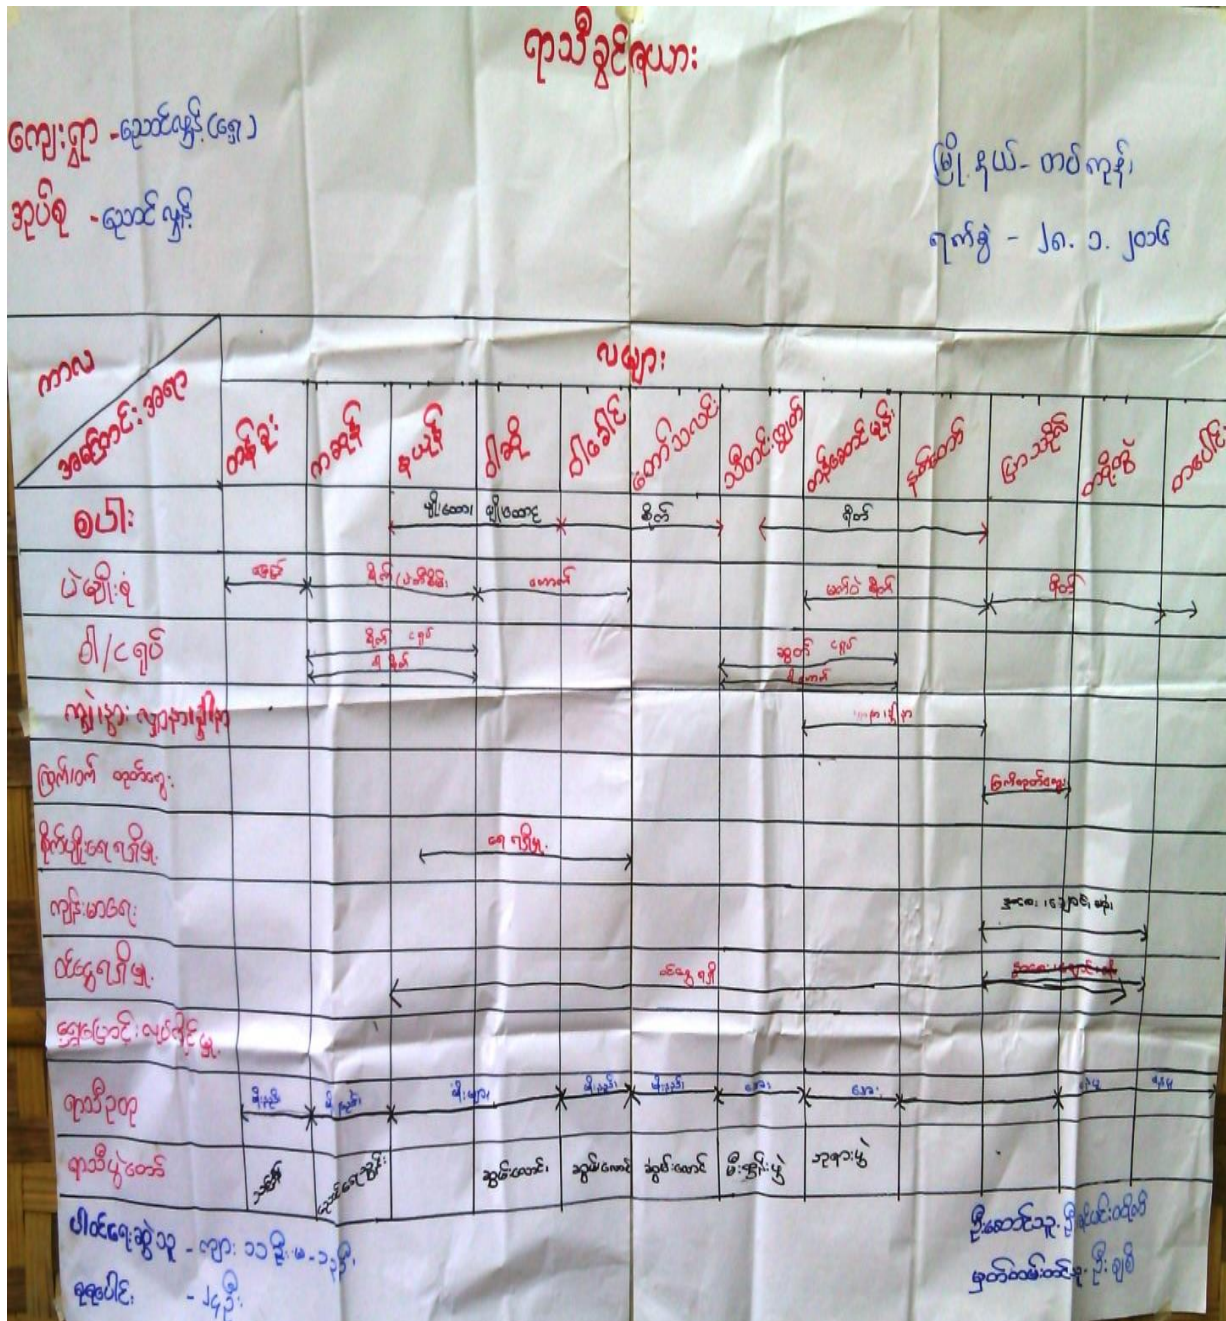 ရာသီခွင်ဇယား
ကျေးရွာ - ညောင်လွန့် (ရှေ့)
အုပ်စု - ညောင်လွန့်
မြို့နယ် - တပ်ကုန်း
ရက်စွဲ - ၂၈. ၁. ၂၀၁၆
ကာလ
အကြောင်းအရာ
လများ
တန်ခူး ကဆုန် နယုန် ဝါဆို ဝါခေါင် တော်သလင်း သီတင်းကျွတ် တန်ဆောင်မုန်း နတ်တော် ပြာသိုလ် တပို့တွဲ တပေါင်း
စပါး စိုက် ရိတ်
ပဲမျိုးစုံ စိုက် မတ်ပဲ စိုက် ရိတ်
ဝါ/ငရုပ် စိုက် ငရုပ် ဝါ စိုက် ငရုပ်
ကျွဲ၊နွား လျှာနာ၊ခွါနာ
ကြက်/ဝက် တုတ်ကွေး
စိုက်ပျိုးရေရရှိမှု ရေ ရရှိမှု
ကျန်းမာရေး နှာစေး၊ချောင်းဆိုး
ဝင်ငွေရရှိမှု ဝင်ငွေ ရရှိ
ရွှေ့ပြောင်းလုပ်ကိုင်မှု
ရာသီဥတု မိုးနည်း မိုးနည်း မိုးများ မိုးနည်း မိုးနည်း အေး အေး
ရာသီပွဲတော် သင်္ကြန် ညောင်ရေသွန်း ဆွမ်းလောင်း ဆွမ်းလောင်း ဆွမ်းလောင်း မီးထွန်းပွဲ ဘုရားပွဲ
ပါဝင်ရေးဆွဲသူ - ကျား ၁၁ ဦး မ - ၁၃ ဦး
စုစုပေါင်း - ၂၄ ဦး
ဦးဆောင်သူ - ဦး
မှတ်တမ်းတင်သူ - ဦး